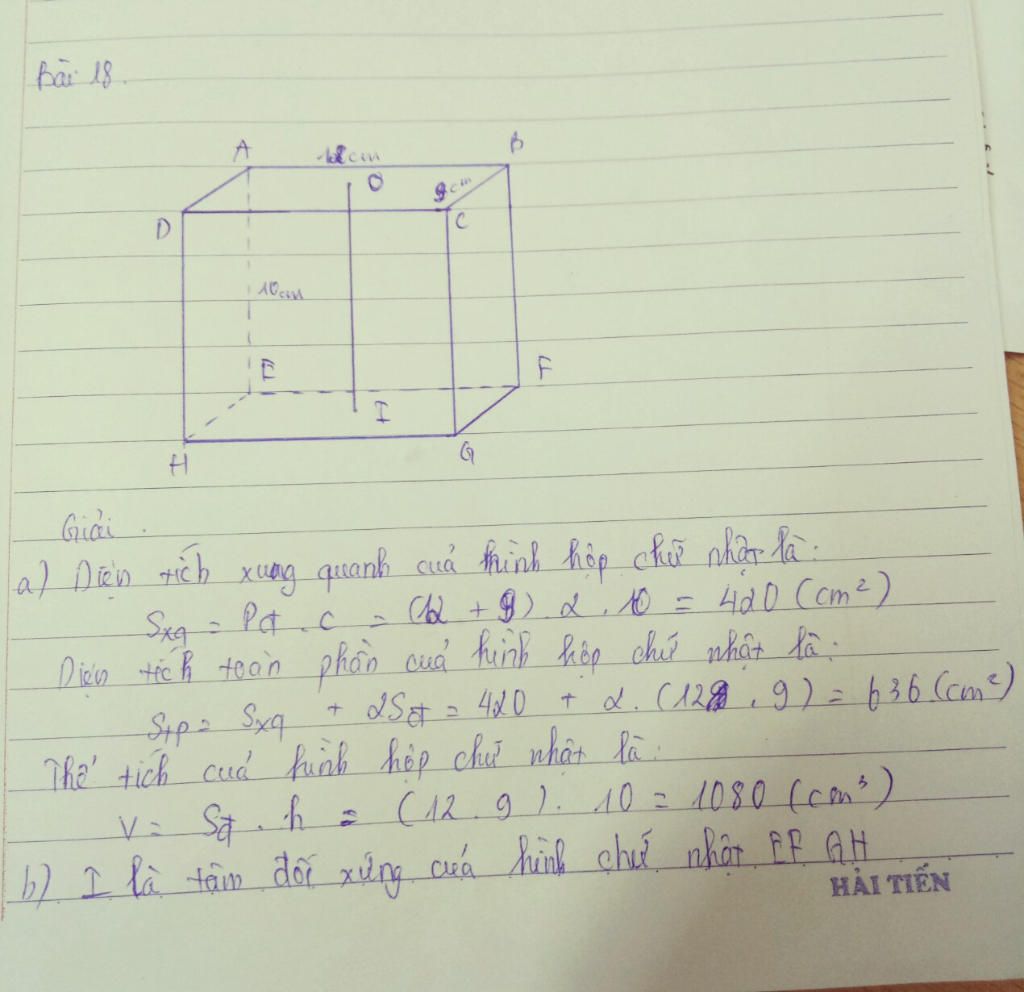 Bài 18.
A 12cm B
O 9cm
D C
10cm
E F
I
H G
Giải.
a) Diện tích xung quanh của hình hộp chữ nhật là:
Sxq = Pđ . c = (12 + 9) . 2 . 10 = 420 (cm²)
Diện tích toàn phần của hình hộp chữ nhật là:
Stp = Sxq + 2Sđ = 420 + 2 . (12 . 9) = 636 (cm²)
Thể tích của hình hộp chữ nhật là:
V = Sđ . h = (12 . 9) . 10 = 1080 (cm³)
b) I là tâm đối xứng của hình chữ nhật EFGH
HẢI TIẾN